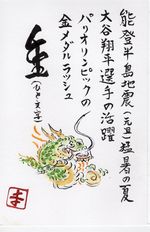 能登半島地震(元旦)猛暑の夏
大谷翔平選手の活躍
パリオリンピックの
金メダルラッシュ
金